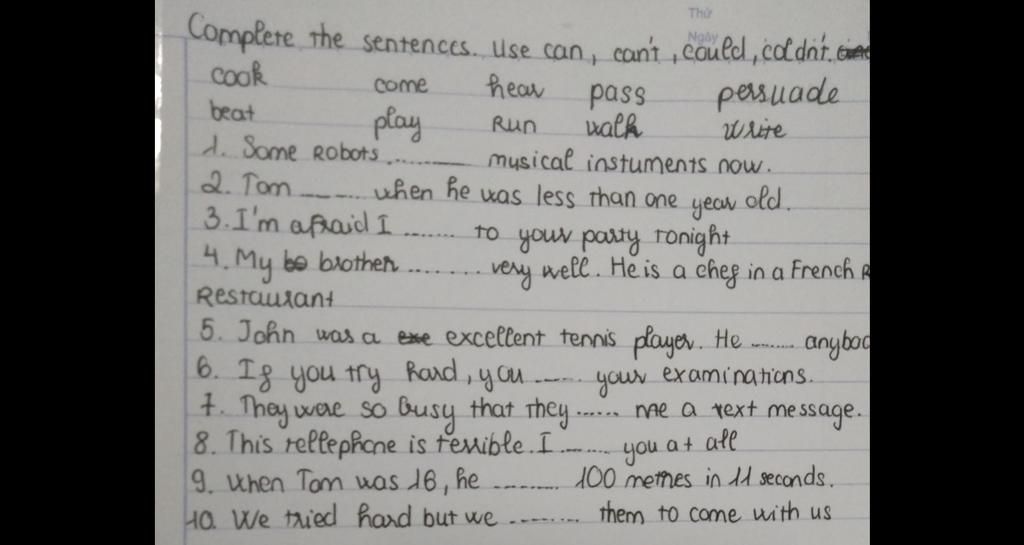 Thứ
Ngày
Complete the sentences. Use can, can't, could, coldn't.
cook come hear pass persuade
beat play Run walk write
1. Some Robots ............ musical instuments now.
2. Tom ............ when he was less than one year old.
3. I'm afraid I ........ to your party Tonight
4. My brother ......... very well. He is a chef in a French R
Restaurant
5. John was a excellent tennis player. He ........ anybod
6. If you try hard, you ........ your examinations.
7. They were so busy that they ...... me a text message.
8. This tellephone is terrible. I ......... you at all
9. when Tom was 16, he ......... 100 metres in 11 seconds.
10. We tried hard but we ......... them to come with us